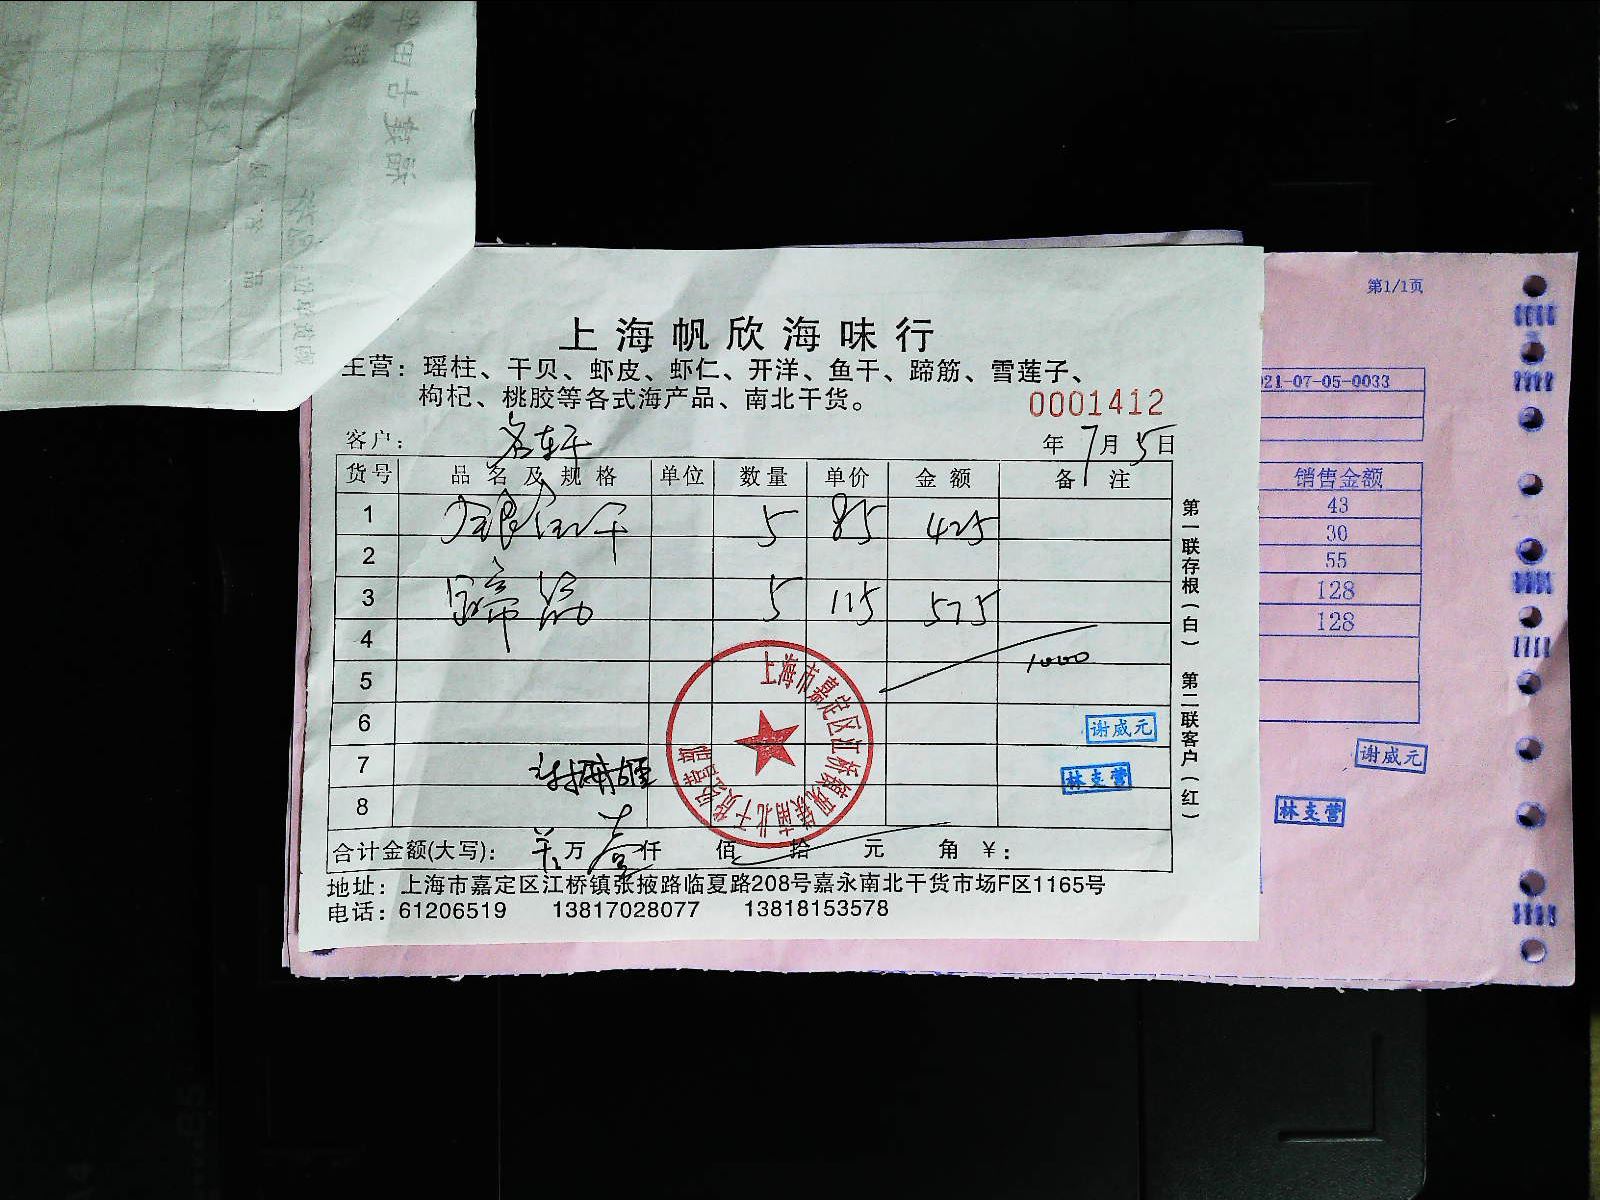 上海帆欣海味行
主营：瑶柱、干贝、虾皮、虾仁、开洋、鱼干、蹄筋、雪莲子、
枸杞、桃胶等各式海产品、南北干货。
0001412
客户： 名轩 年 7月 5日
货号 品名及规格 单位 数量 单价 金额 备注
1 干 5 85 425
2
3 蹄筋 5 115 575
4
1000
5
6 谢威元
7 林支营
8
合计金额(大写)： 万 壹仟 佰 拾 元 角 ￥：
地址：上海市嘉定区江桥镇张掖路临夏路208号嘉永南北干货市场F区1165号
电话：61206519 13817028077 13818153578
第一联存根(白) 第二联客户(红)
上海市嘉定区江桥镇帆欣南北干货经营部
第1/1页
21-07-05-0033
销售金额
43
30
55
128
128
谢威元
林支营